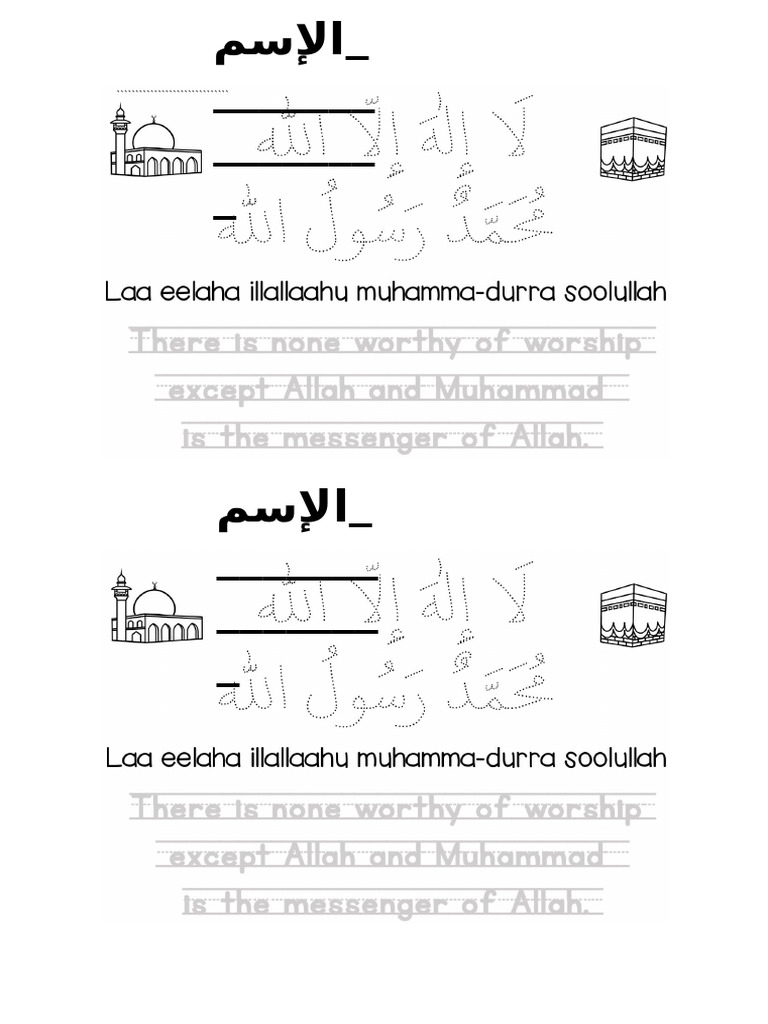 الإسم_
لَا إِلَٰهَ إِلَّا اللّٰه
مُحَمَّدٌ رَسُولُ اللّٰه
Laa eelaha illallaahu muhamma-durra soolullah
There is none worthy of worship
except Allah and Muhammad
is the messenger of Allah.
الإسم_
لَا إِلَٰهَ إِلَّا اللّٰه
مُحَمَّدٌ رَسُولُ اللّٰه
Laa eelaha illallaahu muhamma-durra soolullah
There is none worthy of worship
except Allah and Muhammad
is the messenger of Allah.